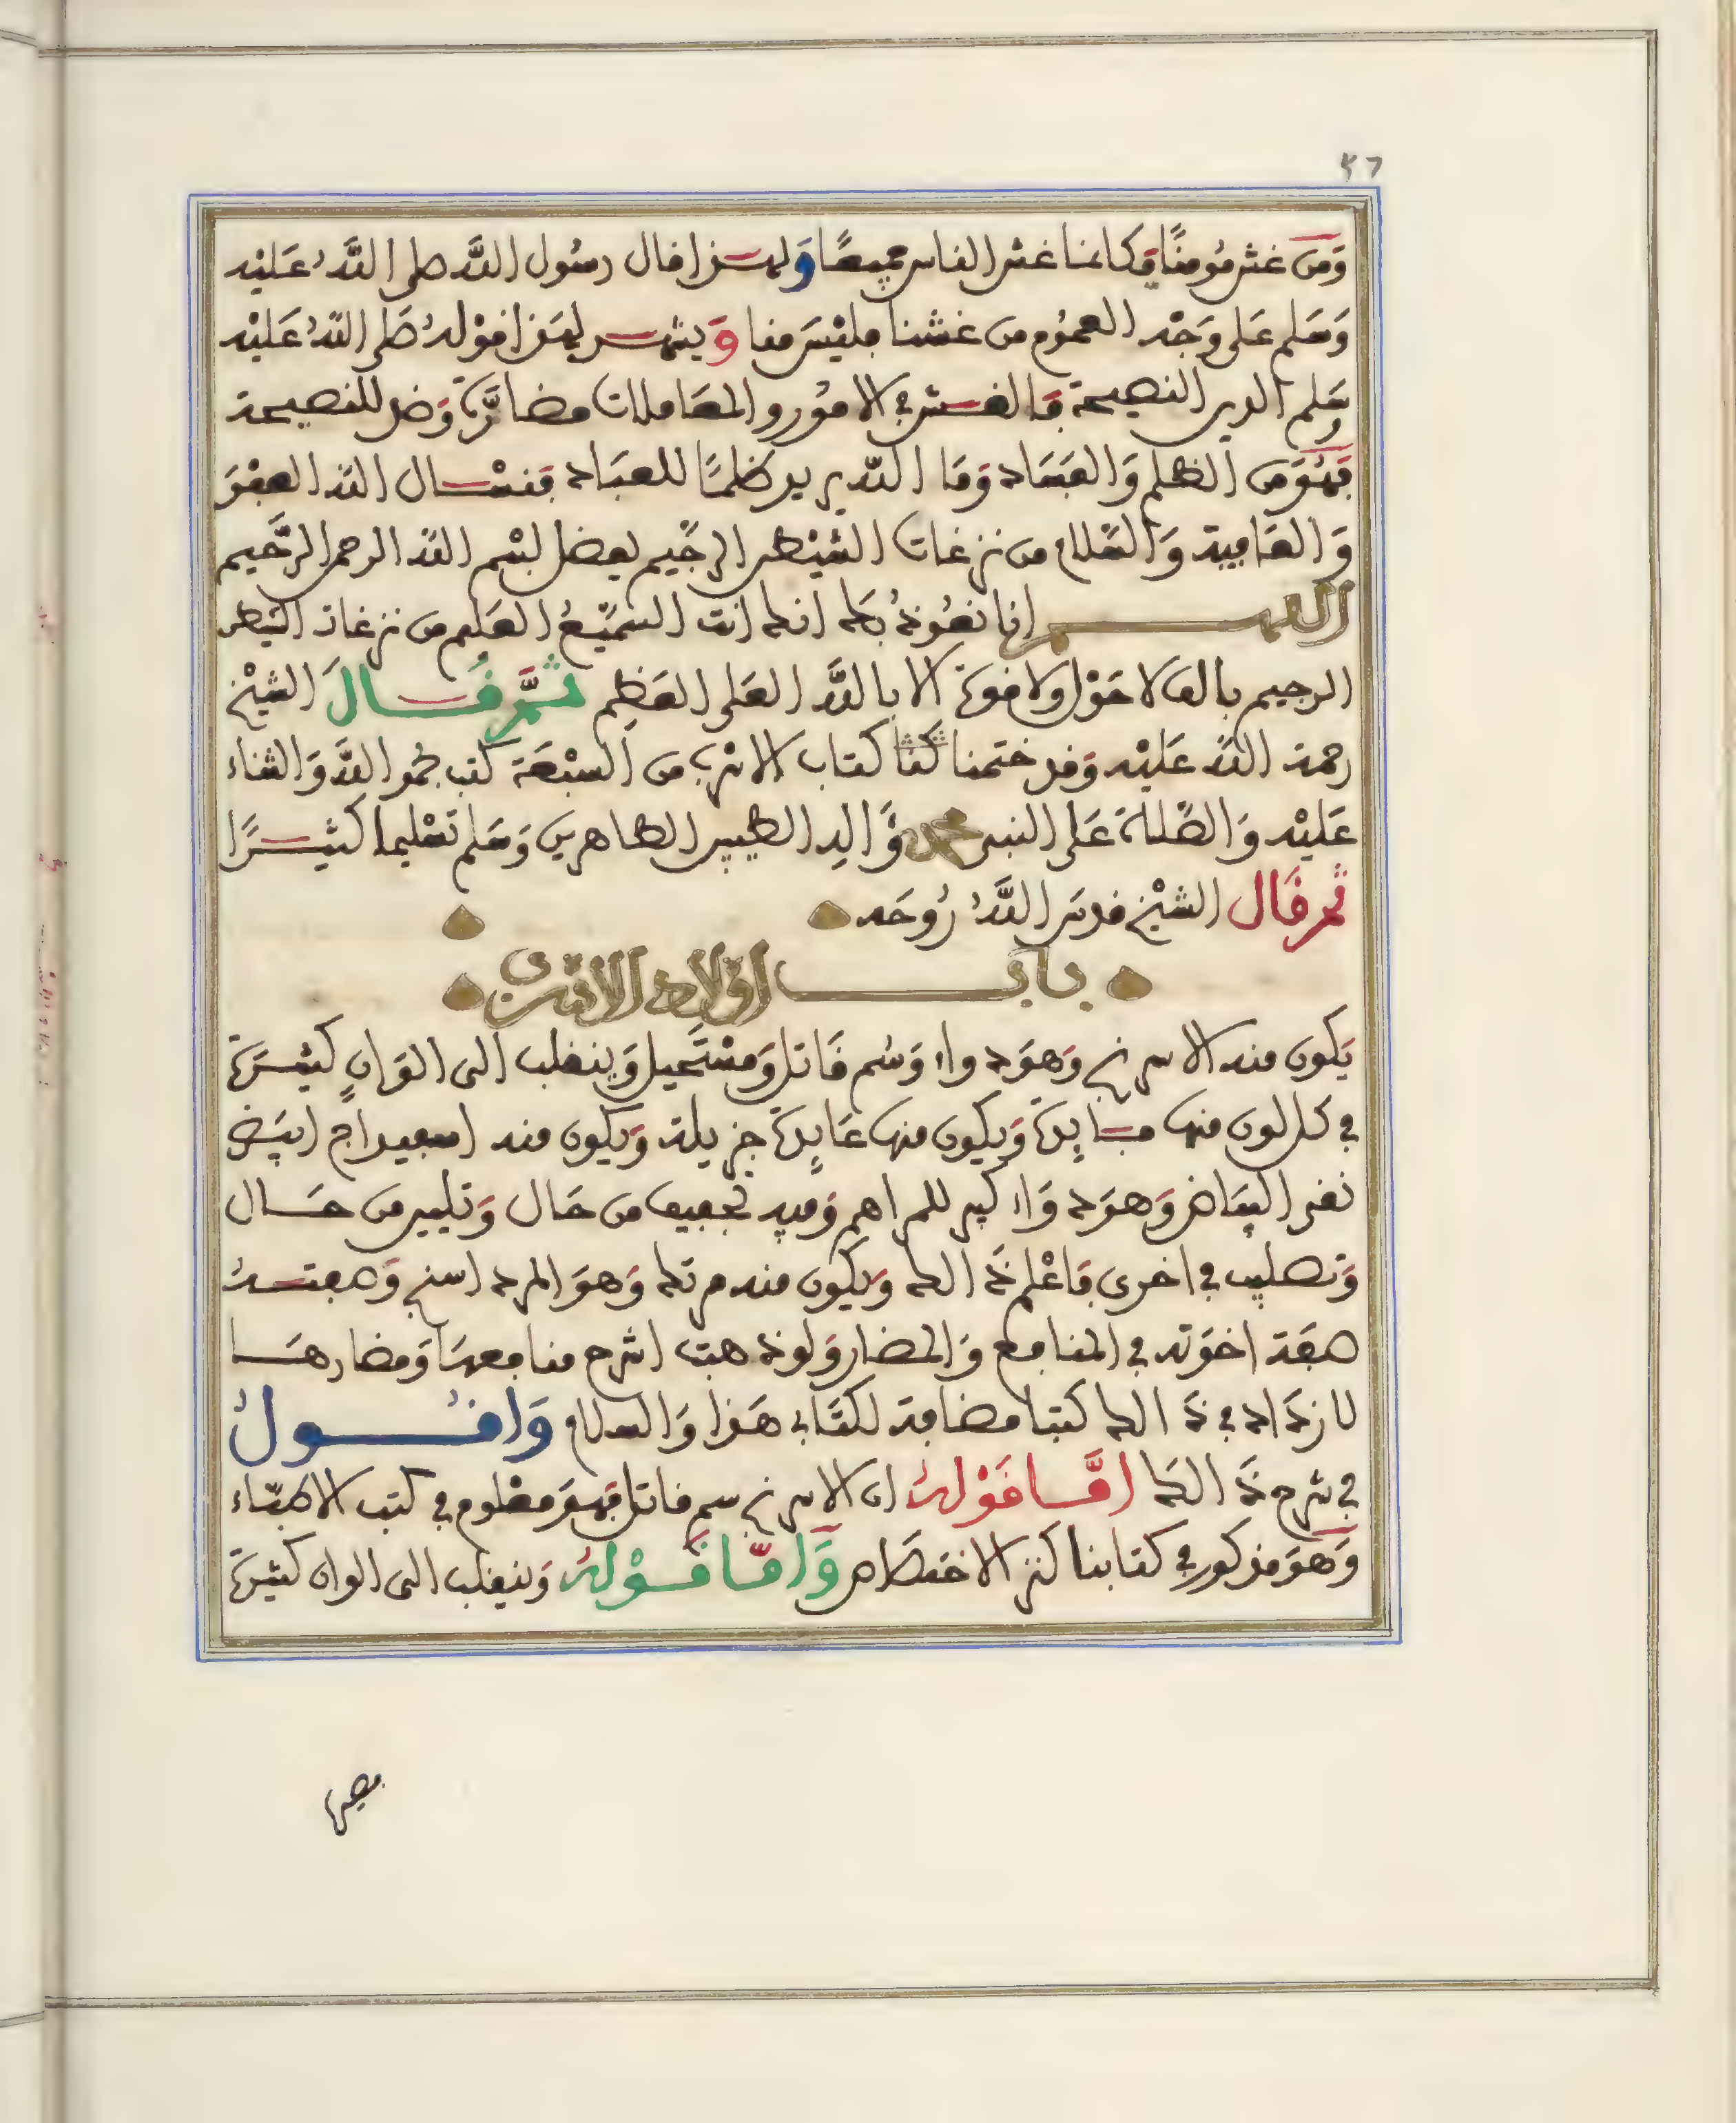 ٤٦
وَمَن غش مُومنًا فكانما غش الناس جميعًا وَلهـذا قال رسُول اللَّه صلى اللَّهُ عَليْه
وَسَلم عَلى وَجْه العمُوم من غشنا فليْسَ منا وَيشهـد لهَذا قوْلهُ صَلى اللهُ عَليْه
وسَلم الدين النصيحة فالغـش في الامُور والمعَاملات مضادَّةٌ وَضد للنصيحة
فهُوَ من الظلم وَالفسَاد وَمَا اللّه يريد ظلمًا للعبَاد فنسْـال الله العفْوَ
وَالعَافية وَالسَّلام من نزغات الشيْطن الرجَيم بفضل بسْم الله الرحمن الرَّحَيم
اللهـــم انا نعُوذُ بكَ انك انت السمَيْعُ العَليم من نزغات الشيطن
الرجيم بالف لا حَوْل ولا قوة الا باللَّه العَلى العَظِيم ثمَّ قَـالَ الشيْخ
رحمة اللهُ عَليْه وَقد ختمنا كتا كتاب الانرب من السبْعَة كتب بحمد اللَّه وَالثناء
عَليْه وَالصَّلاة عَلى النبى محمد وَّالِه الطيبين الطاهرين وَسَلم تسْليما كثيـرًا
ثم قَال الشيْخ قدسَ اللَّهُ رُوحَه
بـابـــ اوْلاد الانربى
يَكون منه الاسرنج وَهوَ دواء وَسُم قاتل وَمسْتَحيل وَينقلب الى الوَانٍ كثيـرَة
في كل لون منها فـايِدة وَيكون منها عَايِدة جزيلة وَيكون منه اسفيداج ابيَض
نقى البيَاض وَهوَ دوَاء كبير للمراهم وَفيه تجفيف من حَال وَتليين من حَـال
وَتصليب في اخرى فاعْلم ذَ الك وَيكون منه مرتك وَهوَ المرد اسنج وَصفتـهُ
صفَة اخوَته في المنافع وَالمضار وَلو ذهبت اشرح منافعهَا وَمضارهَـا
لازدَاد في ذَ الك كتبا مضافة لكتَابى هَذا وَالسلام وَاقُـــولُ
في شرح ذَ الك امَّـا قَوْلهُ ان الاسرنج سم قاتل فهوَ معْلوم في كتب الاطبّاء
وَهوَ مذكور في كتابنا كنز الاختصَاص وَامَّـا قَـوْلهُ وَينقلب الى الوان كثيرَة